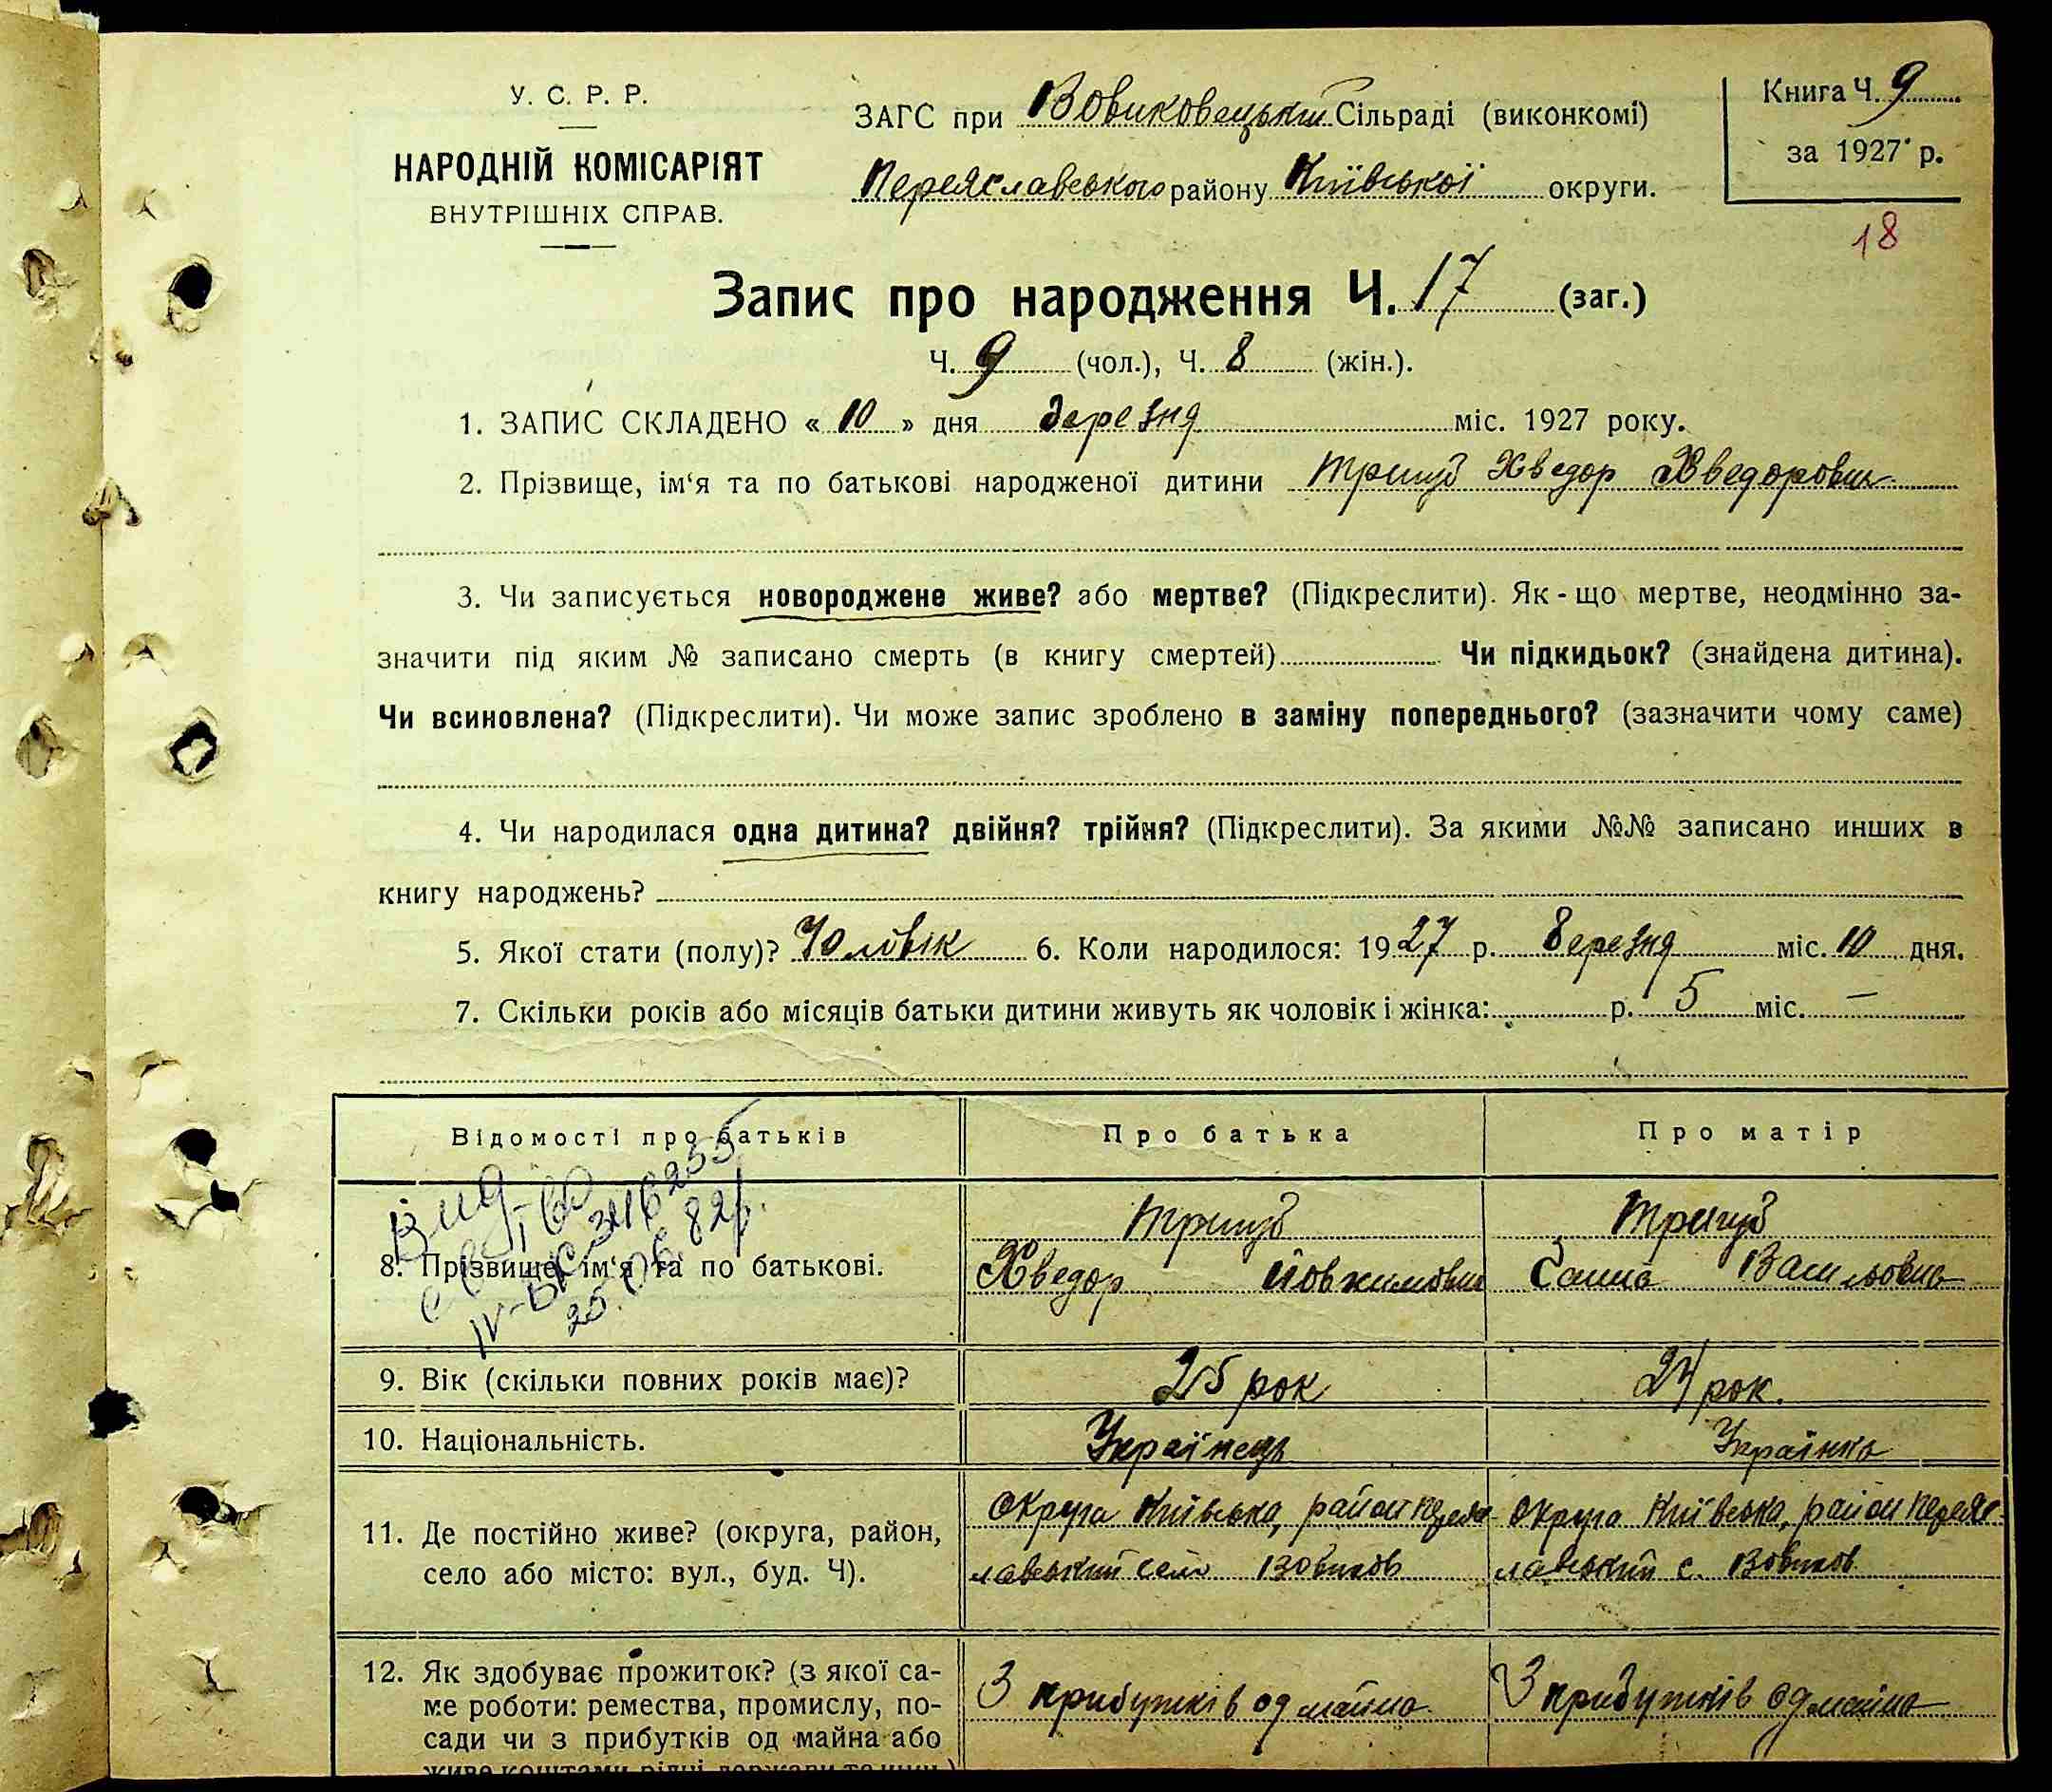 У. С. Р. Р.
НАРОДНІЙ КОМІСАРІЯТ
ВНУТРІШНІХ СПРАВ.
ЗАГС при Вовчковецький Сільраді (виконкомі)
Переяславського району Київської округи.
Книга Ч. 9
за 1927 р.
18
Запис про народження Ч. 17 (заг.)
Ч. 9 (чол.), Ч. 8 (жін.).
1. ЗАПИС СКЛАДЕНО « 10 » дня березня міс. 1927 року.
2. Прізвище, ім‘я та по батькові народженої дитини Тригуб Хведор Хведорович
3. Чи записується новороджене живе? або мертве? (Підкреслити). Як-що мертве, неодмінно за-
значити під яким № записано смерть (в книгу смертей) Чи підкидьок? (знайдена дитина).
Чи всиновлена? (Підкреслити). Чи може запис зроблено в заміну попереднього? (зазначити чому саме)
4. Чи народилася одна дитина? двійня? трійня? (Підкреслити). За якими №№ записано инших в
книгу народжень?
5. Якої стати (полу)? Чоловік 6. Коли народилося: 1927 р. березня міс. 10 дня.
7. Скільки років або місяців батьки дитини живуть як чоловік і жінка: р. 5 міс. —
Відомості про батьків Про батька Про матір
8. Прізвище, ім‘я та по батькові. Тригуб Хведор Йовхимович Тригуб Ганна Васильовна
25.06.82р.
9. Вік (скільки повних років має)? 25 рок 24 рок.
10. Національність. Українець Українка
11. Де постійно живе? (округа, район, Округа Київська, район Переяс- Округа Київська, район Переяс-
село або місто: вул., буд. Ч). лавський село Вовчков лавський с. Вовчков
12. Як здобуває прожиток? (з якої са- З прибутків од майна З прибутків од майна
ме роботи: ремества, промислу, по-
сади чи з прибутків од майна або
живе коштами рідні, держави та инш.)